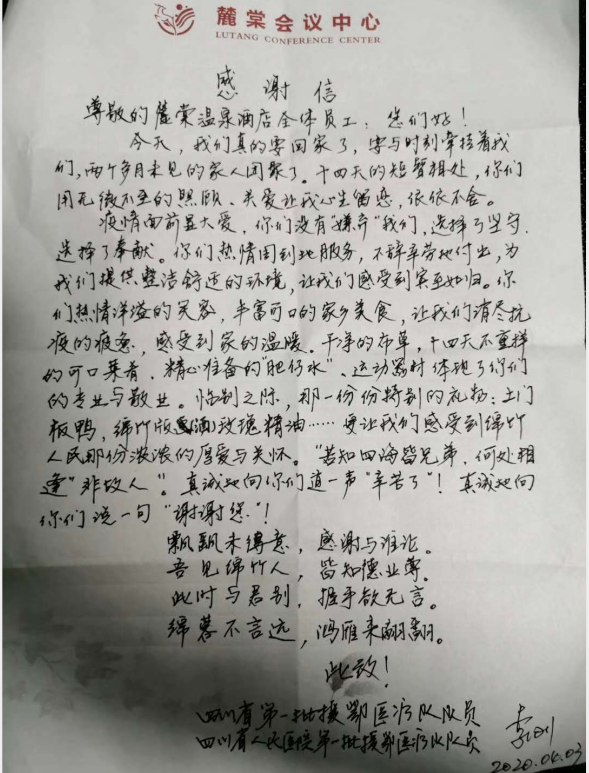 麓棠会议中心
LUTANG CONFERENCE CENTER
感谢信
尊敬的麓棠温泉酒店全体员工：您们好！
今天，我们真的要回家了，要与时刻牵挂着我
们，两个多月未见的家人团聚了。十四天的短暂相处，你们
用无微不至的照顾、关爱让我心生留恋，依依不舍。
疫情面前显大爱，你们没有“嫌弃”我们，选择了坚守，
选择了奉献。你们热情周到地服务，不辞辛劳地付出，为
我们提供整洁舒适的环境，让我们感受到宾至如归。你
们热情洋溢的笑容，丰富可口的家乡美食，让我们消尽抗
疫的疲惫，感受到家的温暖。干净的布草，十四天不重样
的可口菜肴、精心准备的“肥仔水”、运动器材体现了你们
的专业与敬业。临别之际，那一份份特别的礼物：土门
板鸭，绵竹版玫瑰精油……更让我们感受到绵竹
人民那份浓浓的厚爱与关怀。“若知四海皆兄弟，何处相
逢“非故人”。真诚地向你们道一声“辛苦了”！真诚地向
你们说一句“谢谢您”！
飘飘未得意，感谢与谁论。
吾见绵竹人，皆知德业尊。
此时与君别，握手欲无言。
绵蓉不言远，鸿雁来翩翩。
此致！
四川省第一批援鄂医疗队队员
四川省人民医院第一批援鄂医疗队队员 李刚
2020.04.03